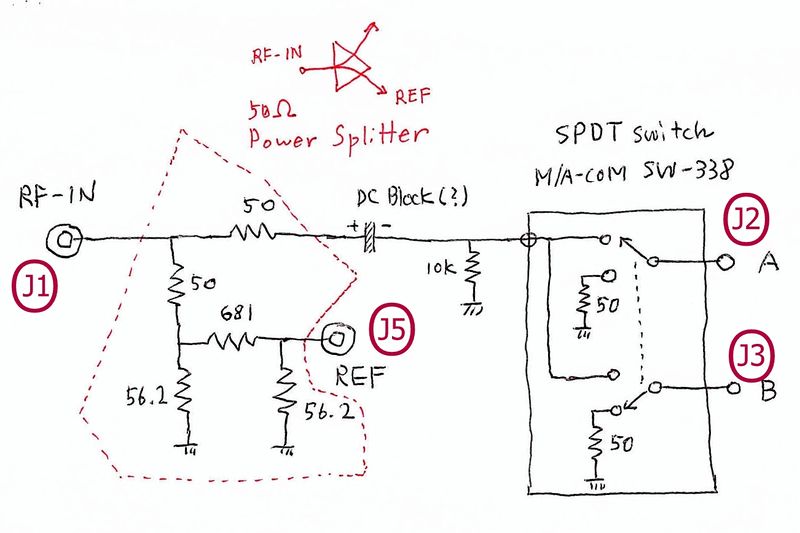 RF-IN
REF
50Ω
Power Splitter
SPDT switch
M/A-COM SW-338
RF-IN
50
DC Block(?)
+ -
J2
A
J1
50
10k
50
681
J5
REF
J3
B
56.2
56.2
50